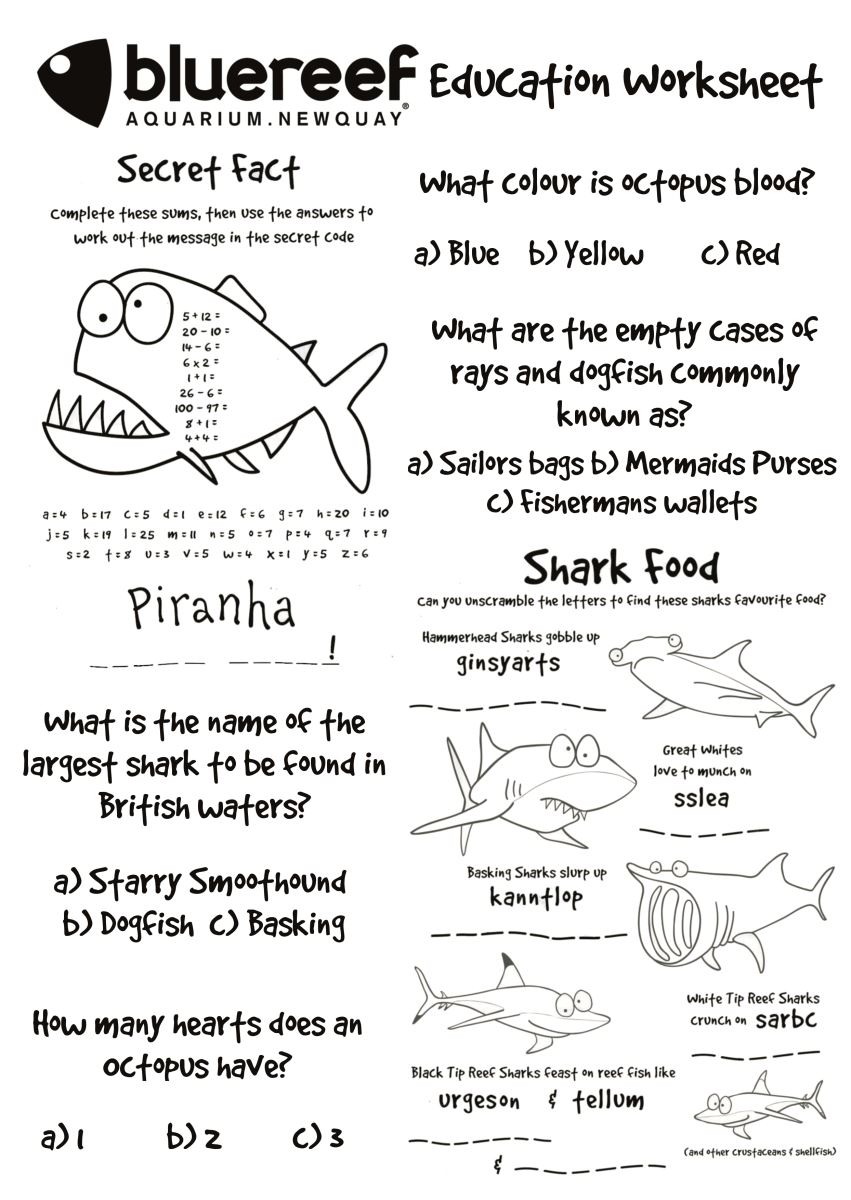 bluereef Education Worksheet
AQUARIUM.NEWQUAY®
Secret Fact
Complete these sums, then use the answers to
work out the message in the secret code
5+12=
20-10=
14-6=
6x2=
1+1=
26-6=
100-97=
8+1=
4+4=
a=4 b=17 c=5 d=1 e=12 f=6 g=7 h=20 i=10
j=5 k=19 l=25 m=11 n=5 o=7 p=4 q=7 r=9
s=2 t=8 u=3 v=5 w=4 x=1 y=5 z=6
Piranha
_ _ _ _ _ _ _ _ _!
What is the name of the
largest shark to be found in
British waters?
a) Starry Smoothound
b) Dogfish c) Basking
How many hearts does an
octopus have?
a) 1 b) 2 c) 3
What colour is octopus blood?
a) Blue b) Yellow c) Red
What are the empty cases of
rays and dogfish commonly
known as?
a) Sailors bags b) Mermaids Purses
c) Fishermans wallets
Shark Food
Can you unscramble the letters to find these sharks favourite food?
Hammerhead Sharks gobble up
ginsyarts
Great Whites
love to munch on
sslea
Basking Sharks slurp up
kanntlop
White Tip Reef Sharks
crunch on sarbc
Black Tip Reef Sharks feast on reef fish like
urgeson & tellum
&
(and other crustaceans & shellfish)